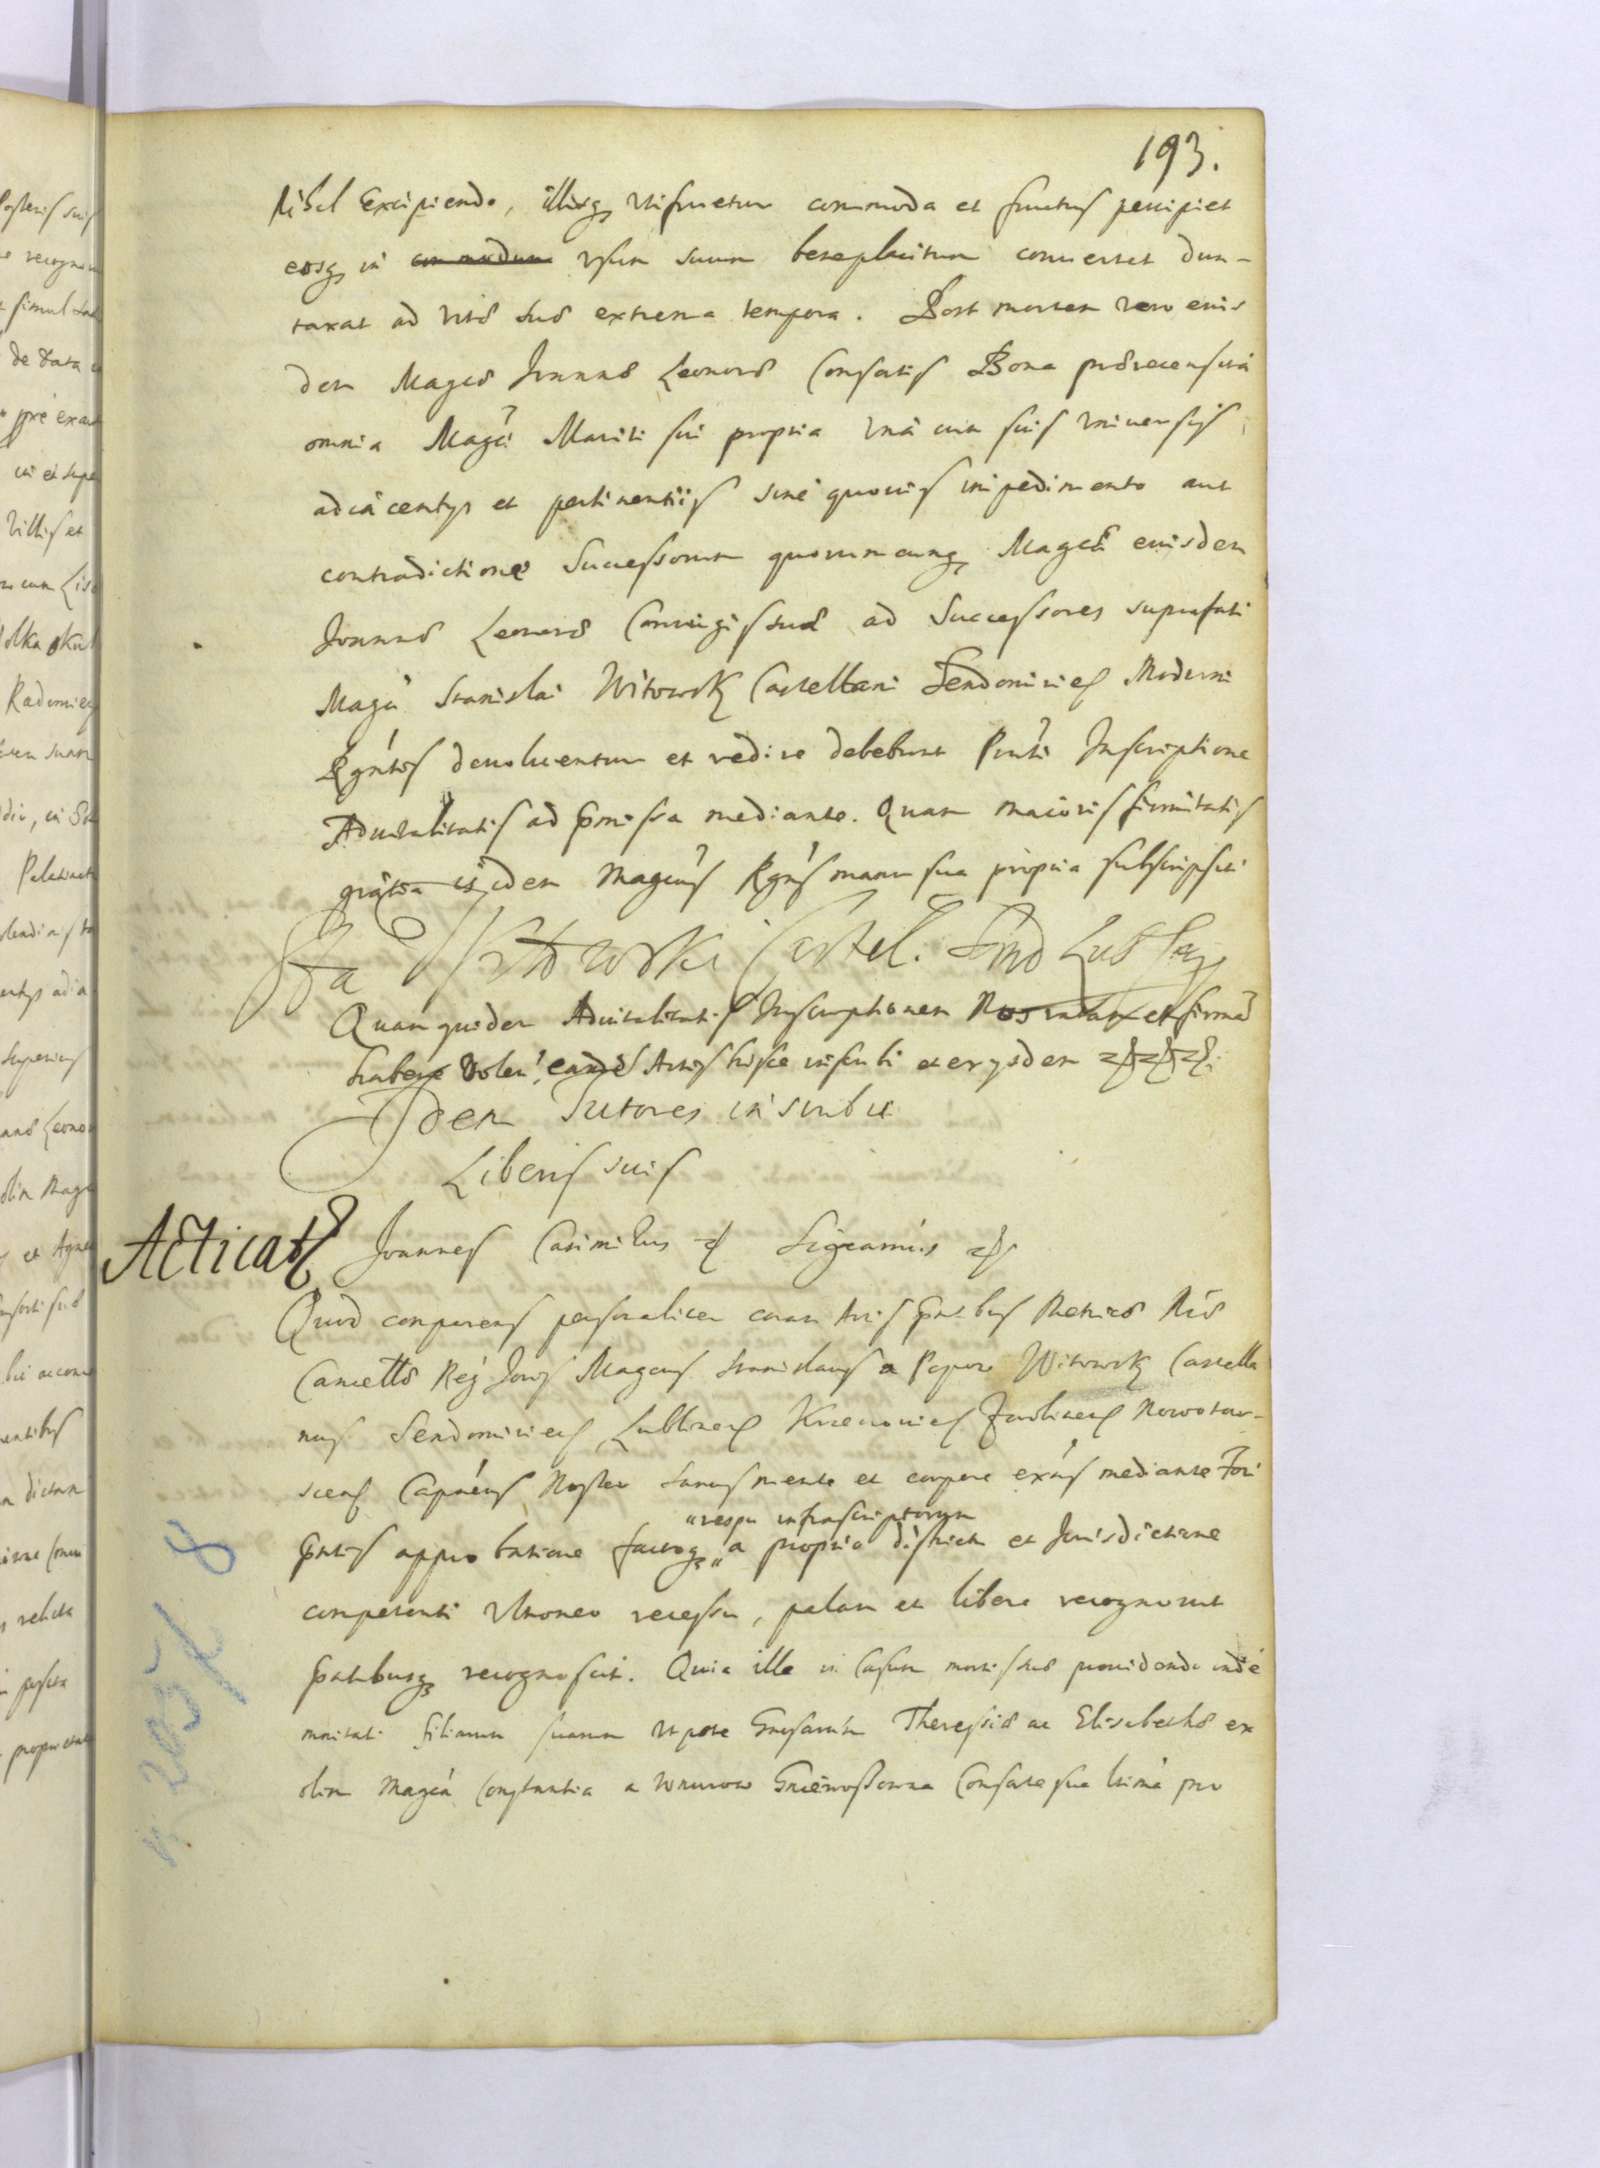 193.
Nihil Excipiendo, illisq utifruetur commoda et fructus percipiet
eosq in commodum usum suum beneplacitum convertet dun-
taxat ad vitæ suæ extrema tempora. Post mortem vero eius
dem Magcæ Joannæ Leonoræ Consortis Bona prærecensita
omnia Magci Mariti sui propria unà cum suis universis
adiacentys et pertinentiis sine quovis impedimento aut
contradictione Successorum quorumcunq Magcæ eiusdem
Joannæ Leonoræ Coniugis suæ ad Successores suprafati
Magci Stanislai Witowsk Castellani Sendomirien Moderni
Rgntis devoluentur et redire debebunt Pnti Inscriptione
Advitalitatis ad pmissa mediante. Quam maioris firmitatis
gratia idem Magcus Rgns manu sua propria subscripsit
Sta Witowski Castel. Send
Quamquidem Advitalitatis Inscriptionem Nos ratam et firma
habere volen, eande Actis hisce inseri et eiysdem
Idem Tutores inscribit
Liberis suis
Acticat Joannes Casimirus Significamus
Quod comparens personaliter coram Actis pntibus Metricæ Mis
Cancellæ Regni Magcus Stanislaus a Popow Witowsk Castella
nus Sendomirien, Lublinen Krzeczovien Zwolinen Nowotar-
scien Capneus Noster sanus mente et corpore exns mediante Fori
pntis approbatione suoq „a propria district et Jurisdictione
„respu infrascriptorum
competenti Ultroneo recessu, palam et libere recognovit
pntibusq recognoscit. Quia ille in Casum mortis suæ providendo inde
mnitati filiarum suarum utpote Theressiæ ac Elisabethæ ex
olim Magca Constantia a Gniewossowna Consorte sua ltima pro